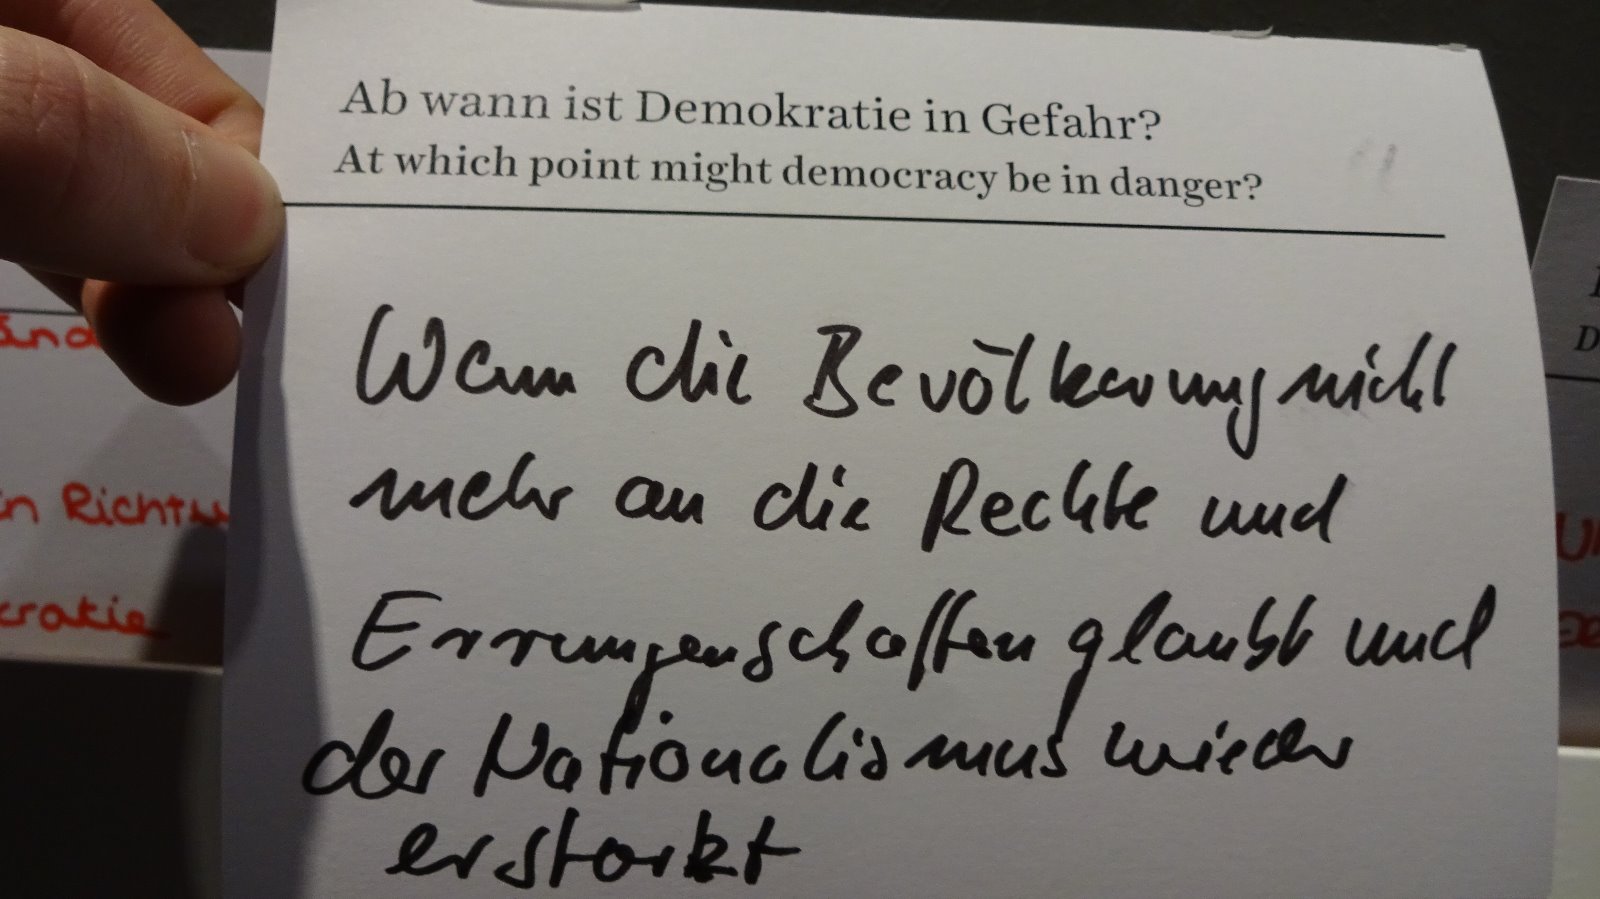 Ab wann ist Demokratie in Gefahr?
At which point might democracy be in danger?
Wenn die Bevölkerung nicht
mehr an die Rechte und
Errungenschaften glaubt und
der Nationalismus wieder
erstarkt
änd
in Richtu
kratie
D